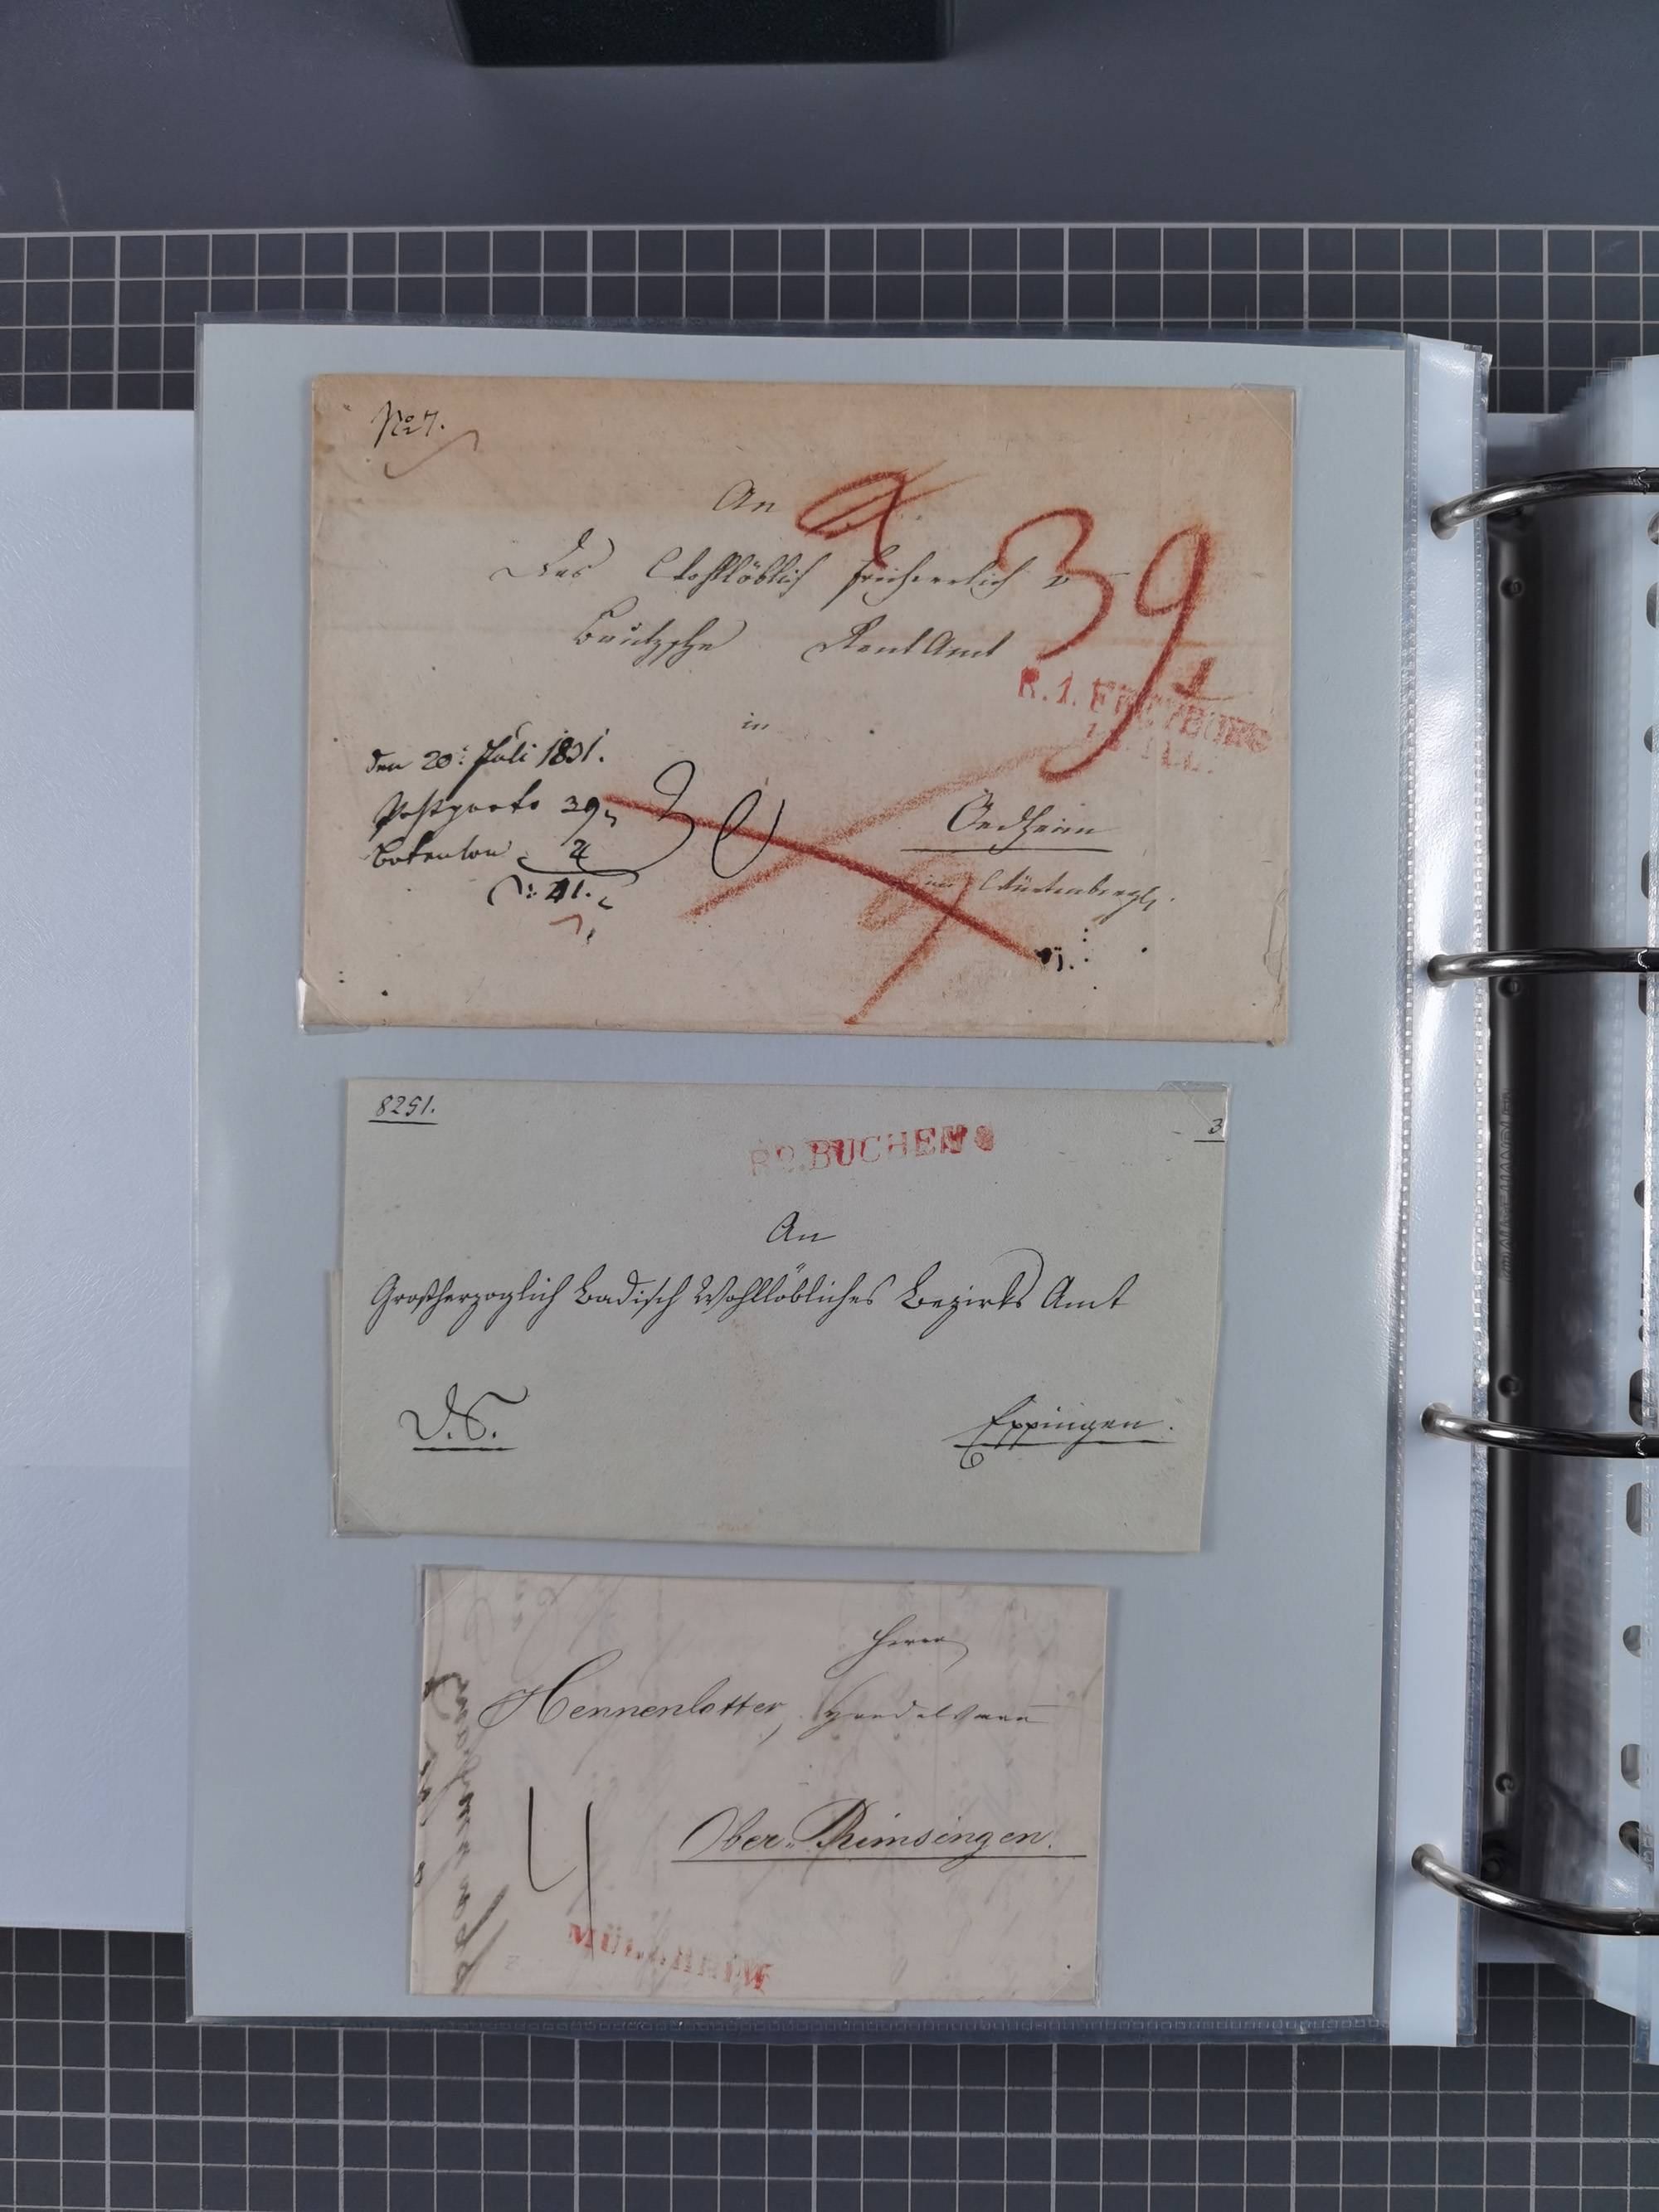 No 7.
An
Das Wohllöblich freiherrlich v
RentAmt
39
R. 1. FREYBURG
in
den 20. Juli 1831.
Postporto 39
Botenlon 2
41.
30
Oedheim
im Würtenberg
8251.
3
R2.BUCHEN
An
Großherzoglich Badisch Wohllöbliches Bezirks Amt
D.S.
Eppingen.
Herrn
Hennenlotter, Handelsmann
4
Ober-Rimsingen.
MÜLLHEIM